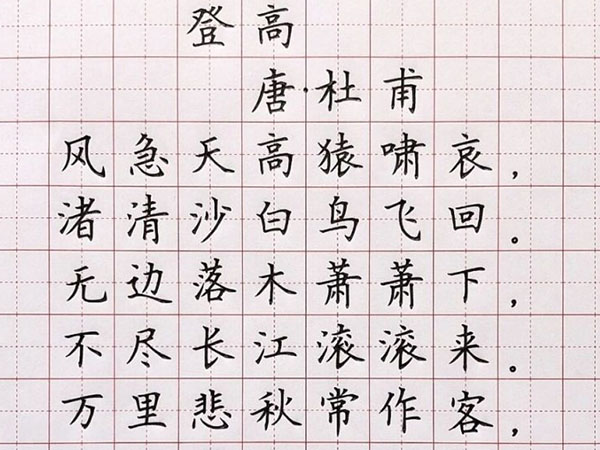 登高
唐·杜甫
风急天高猿啸哀，
渚清沙白鸟飞回。
无边落木萧萧下，
不尽长江滚滚来。
万里悲秋常作客，